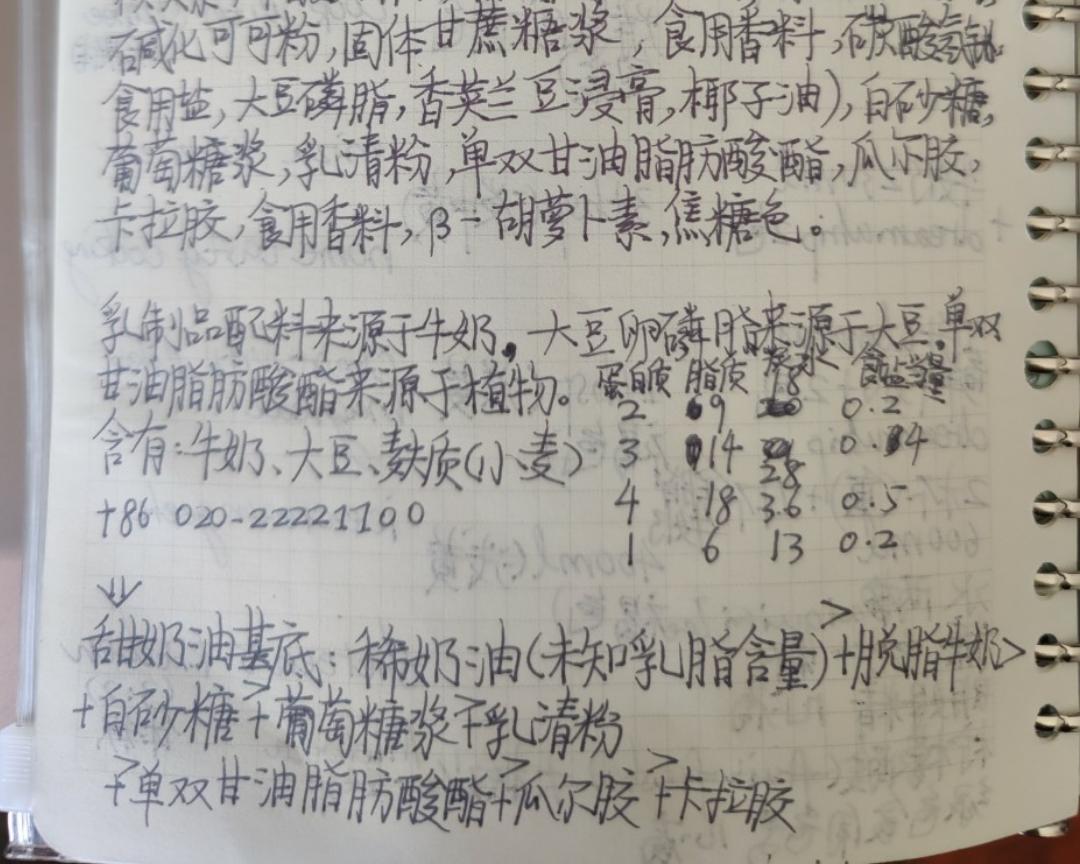 碱化可可粉,固体甘蔗糖浆,食用香料,碳酸氢钠
食用盐,大豆磷脂,香荚兰豆浸膏,椰子油),白砂糖,
葡萄糖浆,乳清粉,单双甘油脂肪酸酯,瓜尔胶,
卡拉胶,食用香料,β-胡萝卜素,焦糖色。
乳制品配料来源于牛奶。大豆卵磷脂来源于大豆.单双
甘油脂肪酸酯来源于植物。 蛋白质 脂质 食盐当量
2 9 18 0.2
含有:牛奶、大豆、麸质(小麦) 3 14 28 0.34
+86 020-22221100 4 18 36 0.5
1 6 13 0.2
⇓
甜奶油基底:稀奶油(未知乳脂含量)>+脱脂牛奶>
+白砂糖>+葡萄糖浆>+乳清粉
>+单双甘油脂肪酸酯>+瓜尔胶>+卡拉胶